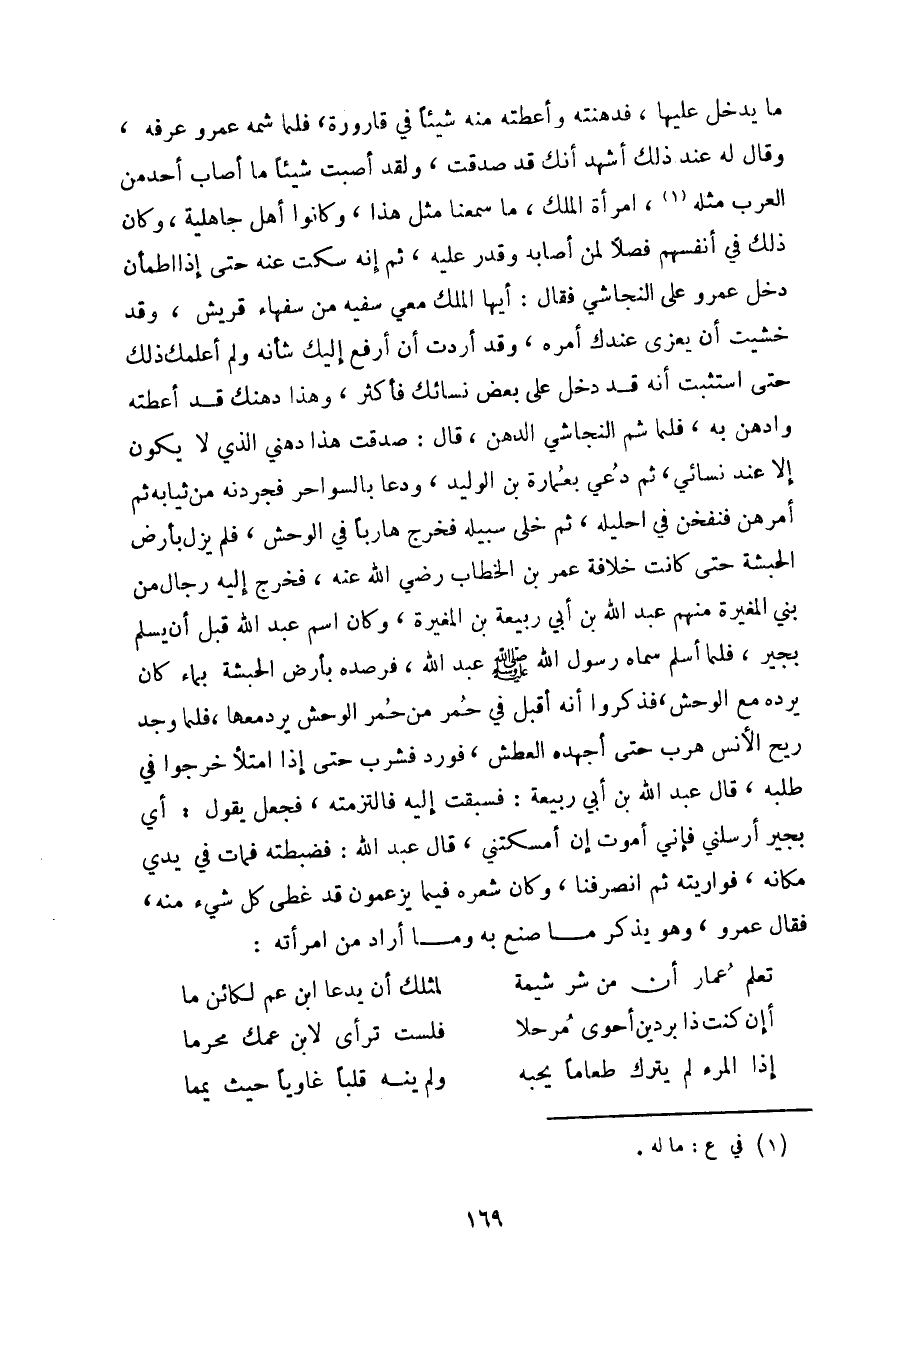 ما يدخل عليها ، فدهنته وأعطته منه شيئاً في قارورة، فلما شمه عمرو عرفه ،
وقال له عند ذلك أشهد أنك قد صدقت ، ولقد أصبت شيئاً ما أصاب أحدمن
العرب مثله (١) ، امرأة الملك ، ما سمعنا مثل هذا ، وكانوا أهل جاهلية ، وكان
ذلك في أنفسهم فصلاً لمن أصابه وقدر عليه ، ثم إنه سكت عنه حتى إذا اطمأن
دخل عمرو على النجاشي فقال : أيها الملك معي سفيه من سفهاء قريش ، وقد
خشيت أن يعزى عندك أمره ، وقد أردت أن أرفع إليك شأنه ولم أعلمك ذلك
حتى استثبت أنه قد دخل على بعض نسائك فأكثر ، وهذا دهنك قد أعطته
وادهن به ، فلما شم النجاشي الدهن ، قال : صدقت هذا دهني الذي لا يكون
إلا عند نسائي ، ثم دُعي بعُمارة بن الوليد ، ودعا بالسواحر فجردنه من ثيابه ثم
أمرهن فنفخن في احليله ، ثم خلى سبيله فخرج هارباً في الوحش ، فلم يزل بأرض
الحبشة حتى كانت خلافة عمر بن الخطاب رضي الله عنه ، فخرج إليه رجال من
بني المغيرة منهم عبد الله بن أبي ربيعة بن المغيرة ، وكان اسم عبد الله قبل أن يسلم
بجير ، فلما أسلم سماه رسول الله ﷺ عبد الله ، فرصده بأرض الحبشة بماء كان
يرده مع الوحش ، فذكروا أنه أقبل في حُمر من حُمر الوحش يردمعها ، فلما وجد
ريح الأنس هرب حتى أجهده العطش ، فورد فشرب حتى إذا امتلأ خرجوا في
طلبه ، قال عبد الله بن أبي ربيعة : فسبقت إليه فالتزمته ، فجعل يقول : أي
بجير أرسلني فإني أموت إن أمسكتني ، قال عبد الله : فضبطته فمات في يدي
مكانه ، فواريته ثم انصرفنا ، وكان شعره فيما يزعمون قد غطى كل شيء منه ،
فقال عمرو ، وهو يذكر مــا صنع به ومــا أراد من امرأته :
تعلم عُمار أن من شر شيمة لمثلك أن يدعا ابن عم لكائن ما
أإن كنت ذا بردين أحوى مُرحلا فلست ترأى لابن عمك محرما
إذا المرء لم يترك طعاماً يحبه ولم ينــه قلباً غاوياً حيث يمما
(١) في ع : ما له .
١٦٩